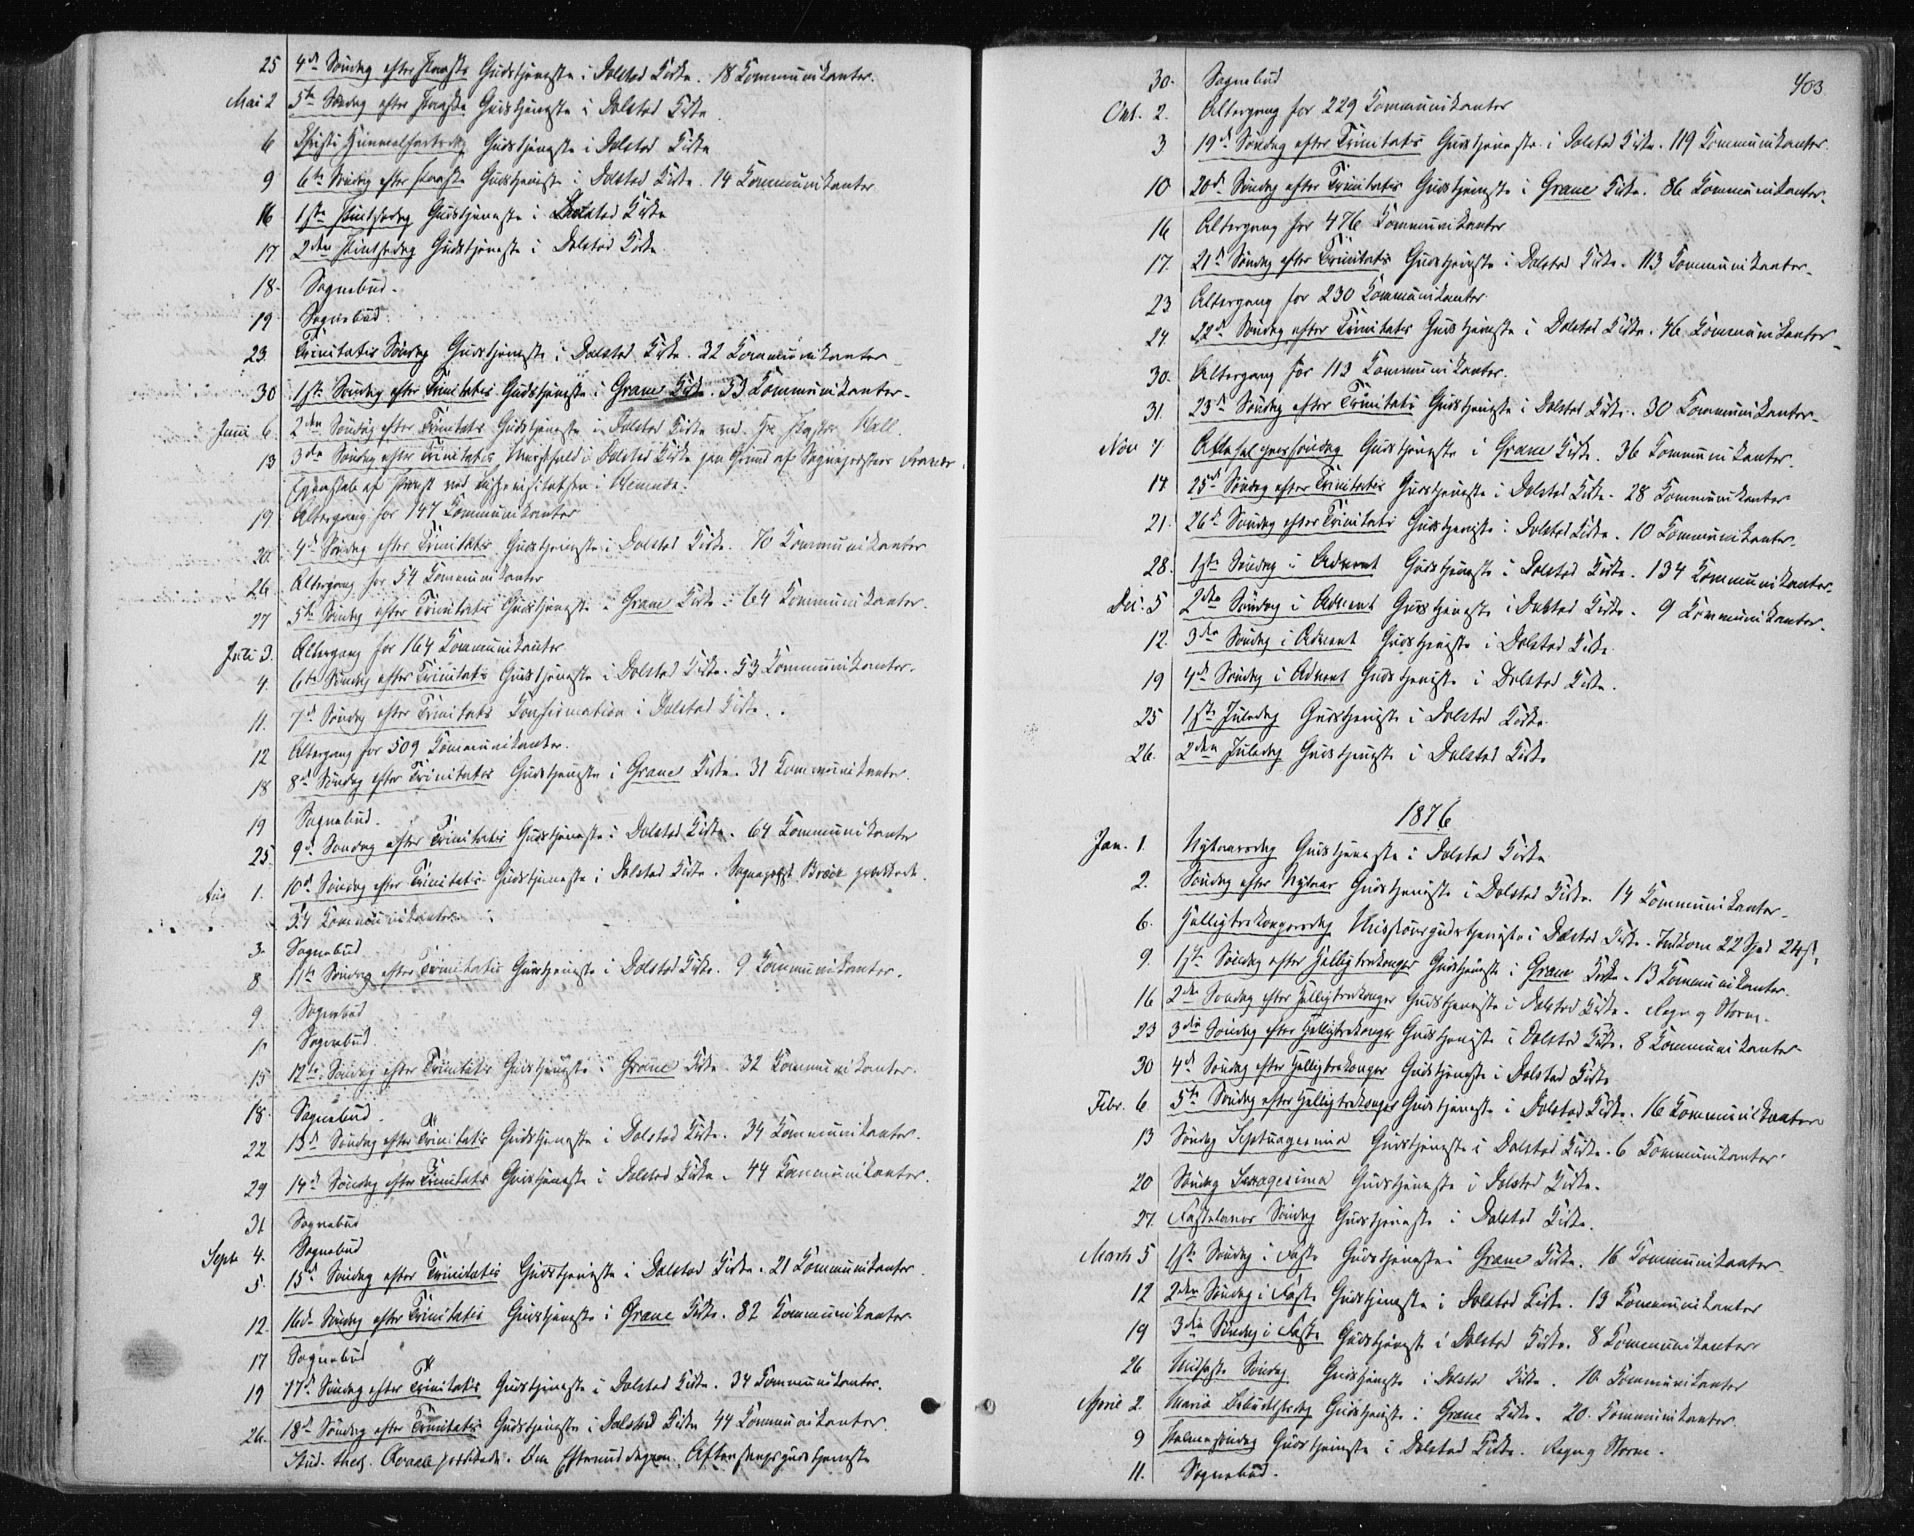 25 4de Søndag efter Paaske Gudstjeneste i Dolstad Kirke. 18 Kommunikanter.
Mai 2 5te Søndag efter Paaske Gudstjeneste i Dolstad Kirke
6 Christi Himmelfartsdag Gudstjeneste i Dolstad Kirke
9 6te Søndag efter Paaske Gudstjeneste i Dolstad Kirke. 14 Kommunikanter
16 1ste Pintsedag Gudstjeneste i Dolstad Kirke
17 2den Pintsedag Gudstjeneste i Dolstad Kirke
18. Sognebud.
19 Sognebud.
23. Trinitatis Søndag Gudstjeneste i Dolstad Kirke. 32 Kommunikanter
30 1ste Søndag efter Trinitatis Gudstjeneste i Grane Kirke. 53 Kommunikanter.
Juni 6. 2den Søndag efter Trinitatis Gudstjeneste i Dolstad Kirke ved Hr Pastor
13 3die Søndag efter Trinitatis Messefald i Dolstad Kirke paa Grund af Sognepræstens
i Hemnæs.
19 Altergang for 147 Kommunikanter
20. 4de Søndag efter Trinitatis Gudstjeneste i Dolstad Kirke. 70 Kommunikanter
26. Altergang for 54 Kommunikanter
27 5te Søndag efter Trinitatis Gudstjeneste i Grane Kirke. 64 Kommunikanter.
Juli 3. Altergang for 164 Kommunikanter
4. 6te Søndag efter Trinitatis Gudstjeneste i Dolstad Kirke. 53 Kommunikanter.
11. 7de Søndag efter Trinitatis Konfirmation i Dolstad Kirke.
12 Altergang for 509 Kommunikanter.
18 8de Søndag efter Trinitatis Gudstjeneste i Grane Kirke. 31 Kommunikanter.
19 Sognebud.
25. 9de Søndag efter Trinitatis Gudstjeneste i Dolstad Kirke. 64 Kommunikanter
Aug 1. 10de Søndag efter Trinitatis Gudstjeneste i Dolstad Kirke. Sognepræst prædikede.
54 Kommunikanter
3. Sognebud
8. 11te Søndag efter Trinitatis Gudstjeneste i Dolstad Kirke. 9 Kommunikanter.
9. Sognebud
Sognebud
15 12te Søndag efter Trinitatis Gudstjeneste i Grane Kirke. 32 Kommunikanter.
18. Sognebud.
22 13de Søndag efter Trinitatis Gudstjeneste i Dolstad Kirke. 34 Kommunikanter.
29 14de Søndag efter Trinitatis Gudstjeneste i Dolstad Kirke. 44 Kommunikanter.
31 Sognebud
Sept 4. Sognebud
5. 15de Søndag efter Trinitatis Gudstjeneste i Dolstad Kirke. 21 Kommunikanter
12. 16de Søndag efter Trinitatis Gudstjeneste i Grane Kirke. 82 Kommunikanter
17 Sognebud
19 17de Søndag efter Trinitatis Gudstjeneste i Dolstad Kirke. 34 Kommunikanter.
26. 18de Søndag efter Trinitatis Gudstjeneste i Dolstad Kirke 44 Kommunikanter.
Stud. theol. prædikede. Om Eftermiddagen Aftensangsgudstjeneste
403
30. Sognebud
Okt. 2. Altergang for 229 Kommunikanter
3 19de Søndag efter Trinitatis Gudstjeneste i Dolstad Kirke. 119 Kommunikanter.
10 20de Søndag efter Trinitatis Gudstjeneste i Grane Kirke. 86 Kommunikanter.
16 Altergang for 476 Kommunikanter
17. 21de Søndag efter Trinitatis Gudstjeneste i Dolstad Kirke. 113 Kommunikanter.
23 Altergang for 230 Kommunikanter
24 22de Søndag efter Trinitatis Gudstjeneste i Dolstad Kirke. 46 Kommunikanter.
30. Altergang for 113 Kommunikanter.
31. 23de Søndag efter Trinitatis Gudstjeneste i Dolstad Kirke. 30 Kommunikanter.
Nov 7 Allehelgenssøndag Gudstjeneste i Grane Kirke. 36 Kommunikanter.
14 25de Søndag efter Trinitatis Gudstjeneste i Dolstad Kirke. 28 Kommunikanter
21. 26de Søndag efter Trinitatis Gudstjeneste i Dolstad Kirke. 10 Kommunikanter.
28. 1ste Søndag i Advent Gudstjeneste i Dolstad Kirke. 134 Kommunikanter.
Dec. 5 2den Søndag i Advent Gudstjeneste i Dolstad Kirke. 9 Kommunikanter.
12. 3die Søndag i Advent Gudstjeneste i Dolstad Kirke.
19 4de Søndag i Advent Gudstjeneste i Dolstad Kirke.
25 1ste Juledag Gudstjeneste i Dolstad Kirke.
26. 2den Juledag Gudstjeneste i Dolstad Kirke
1876
Jan. 1. Nytaarsdag Gudstjeneste i Dolstad Kirke
2. Søndag efter Nytaar Gudstjeneste i Dolstad Kirke. 14 Kommunikanter.
6. Helligtrekongersdag Missionsgudstjeneste i Dolstad Kirke. Indkom 22 Spd 24 s.
9. 1ste Søndag efter Helligtrekonger Gudstjeneste i Grane Kirke. 13 Kommunikanter.
16 2den Søndag efter Helligtrekonger Gudstjeneste i Dolstad Kirke. Regn og Storm.
23 3die Søndag efter Helligtrekonger Gudstjeneste i Dolstad Kirke. 8 Kommunikanter
30 4de Søndag efter Helligtrekonger Gudstjeneste i Dolstad Kirke
Febr. 6 5te Søndag efter Helligtrekonger Gudstjeneste i Dolstad Kirke. 16 Kommunikanter
13 Søndag Septuagesima Gudstjeneste i Dolstad Kirke. 6 Kommunikanter.
20 Søndag Sexagesima Gudstjeneste i Dolstad Kirke.
27. Fastelavns Søndag Gudstjeneste i Dolstad Kirke.
Marts 5 1ste Søndag i Faste Gudstjeneste i Grane Kirke. 16 Kommunikanter
12 2den Søndag i Faste Gudstjeneste i Dolstad Kirke. 13 Kommunikanter
19 3die Søndag i Faste Gudstjeneste i Dolstad Kirke. 8 Kommunikanter
26 Midfaste Søndag Gudstjeneste i Dolstad Kirke. 10 Kommunikanter
April 2. Mariæ Bebudelsesdag Gudstjeneste i Grane Kirke. 20. Kommunikanter.
9 Palmesøndag Gudstjeneste i Dolstad Kirke. Regn og Storm.
11. Sognebud.